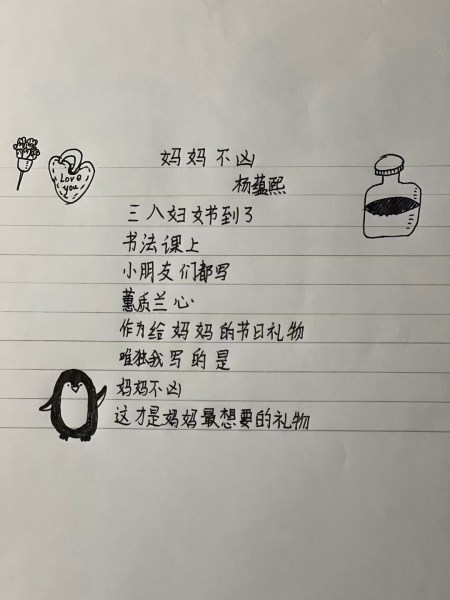 妈妈不凶
Love
you
杨蕴熙
三八妇女节到了
书法课上
小朋友们都写
蕙质兰心
作为给妈妈的节日礼物
唯独我写的是
妈妈不凶
这才是妈妈最想要的礼物